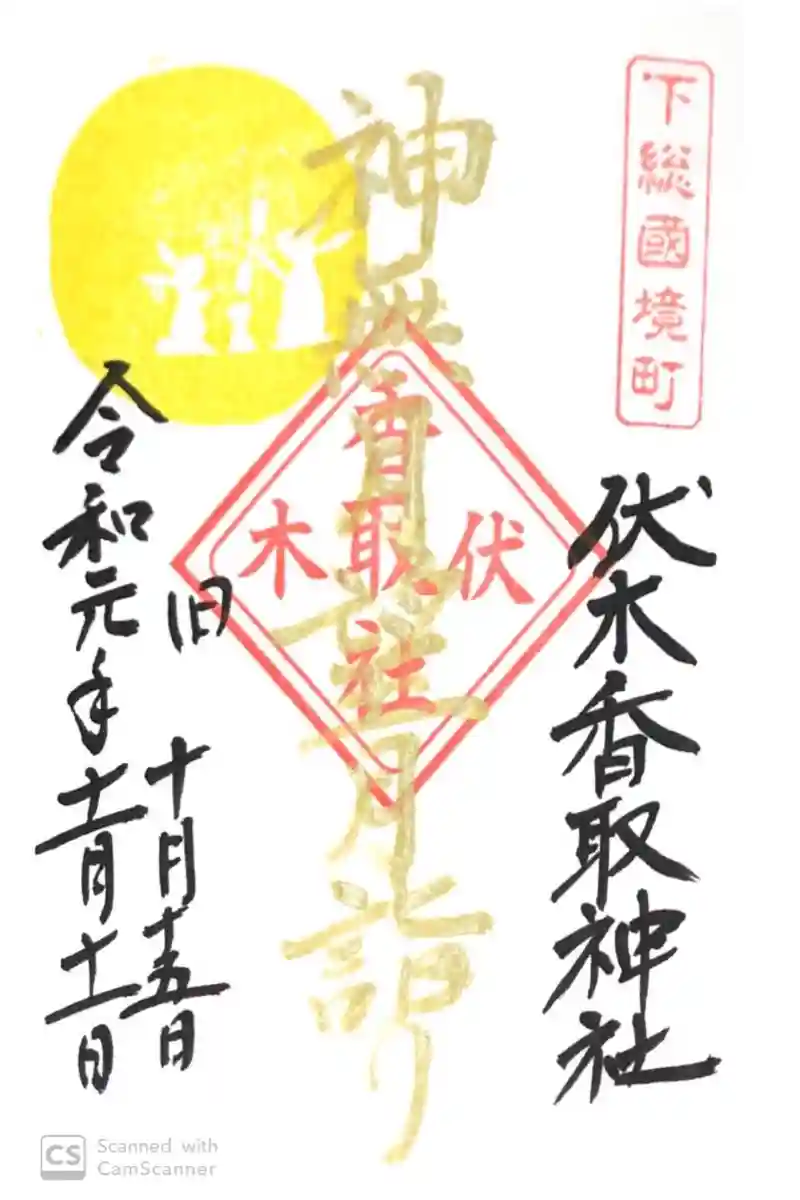 下総國境町
伏木香取神社
神無月月詣り
伏木
香取社
旧十月十五日
令和元年十一月十一日
CS Scanned with
CamScanner